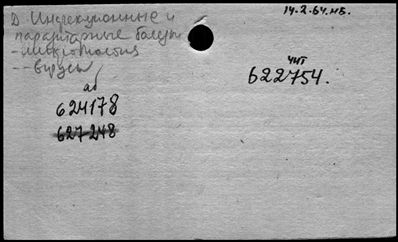 Д. Инфекционные и
паразитарные болезни
--вирусы
14.2.64.мб.
чит
622754.
аб
624178
627248